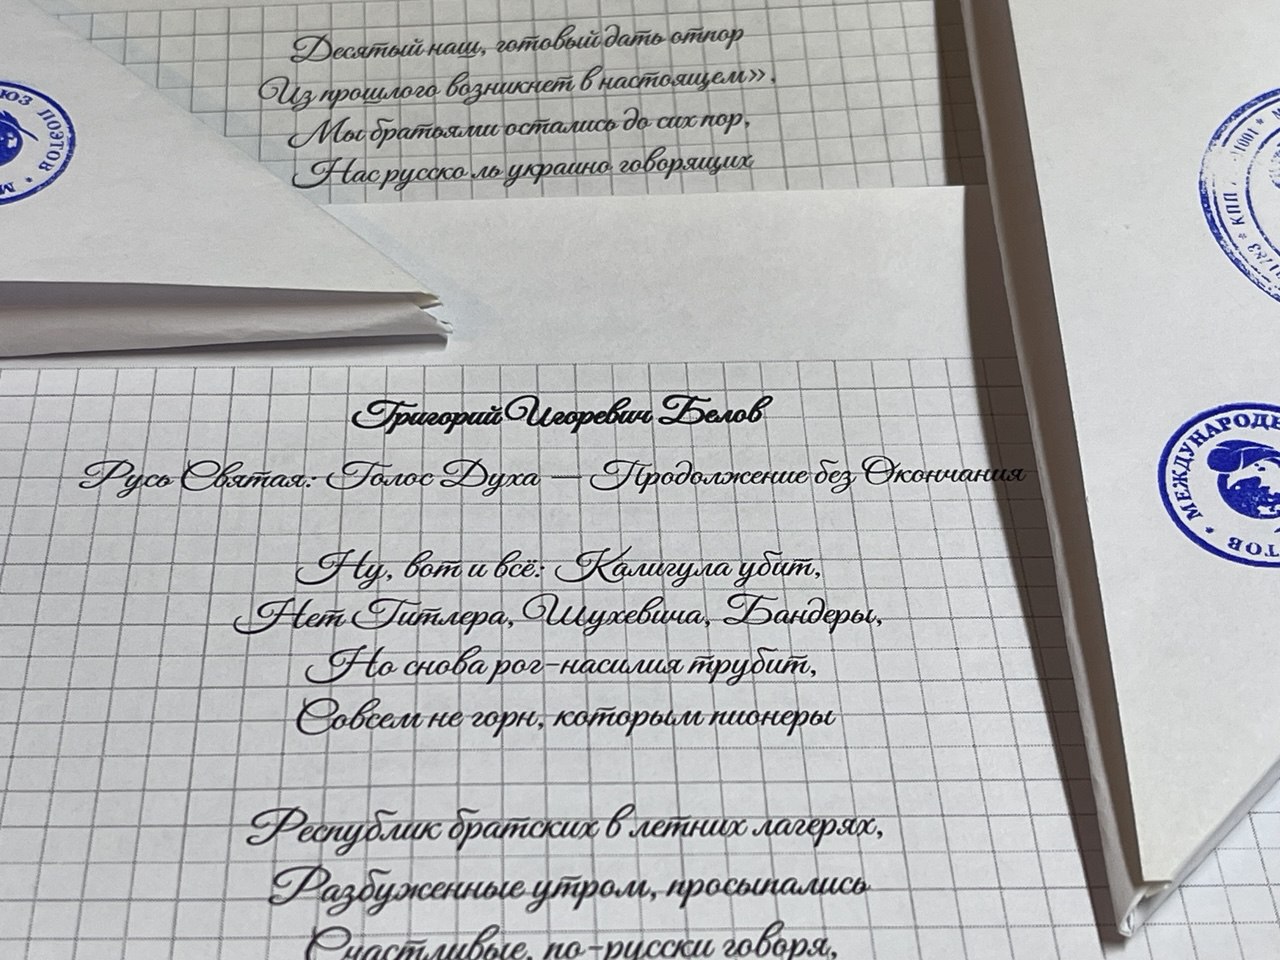 Десятый наш, готовый дать отпор
Из прошлого возникнет в настоящем».
Мы братьями остались до сих пор,
Нас русско ль украино говорящих
ПОЭТОВ
Григорий Игоревич Белов
Русь Святая: Голос Духа — Продолжение без Окончания
Ну, вот и всё: Калигула убит,
Нет Гитлера, Шухевича, Бандеры,
Но снова рог-насилия трубит,
Совсем не горн, которым пионеры
Республик братских в летних лагерях,
Разбуженные утром, просыпались
Счастливые, по-русски говоря,
КПП